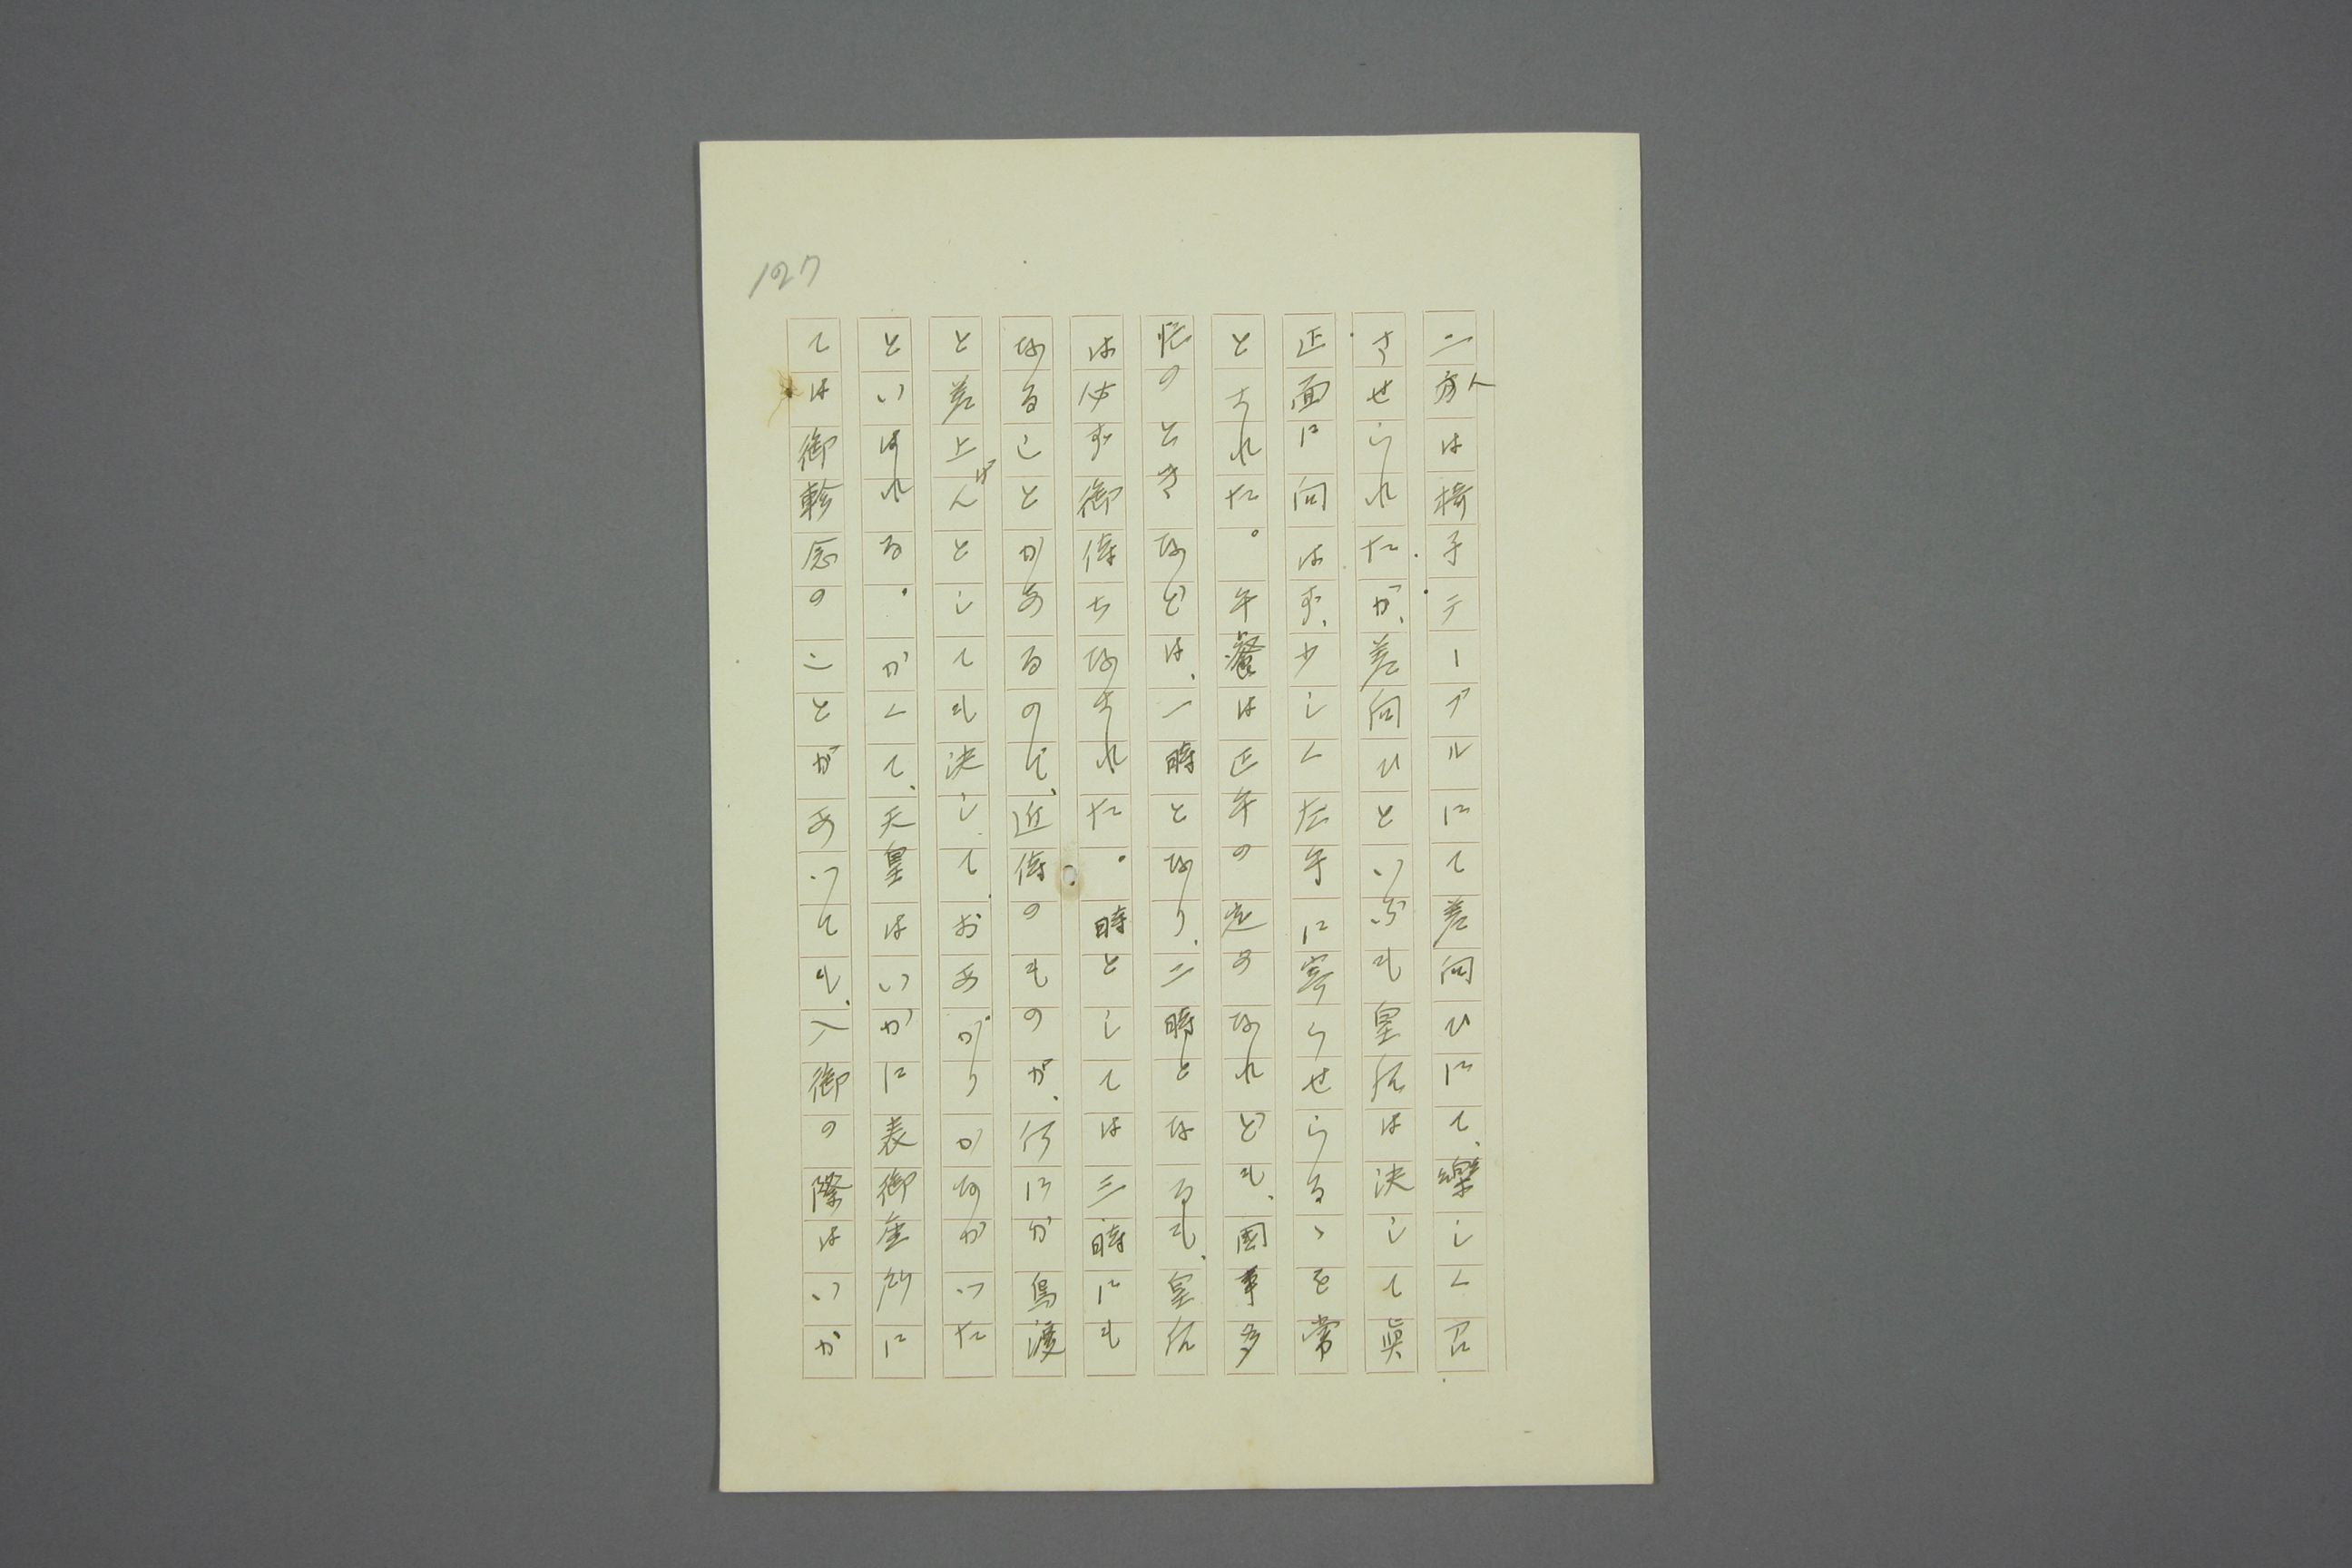 127
二方人は椅子テーブルにて差向ひにて、樂しく召
させられたが、差向ひといふも皇后は決して眞
正面に向はず、少しく左手に寄らせらるゝを常
とされた。午餐は正午の定めなれども、國事多
忙のときなどは、一時となり、二時となるも、皇后
は必ず御待ちなされた。時としては三時にも
なることがあるので、近侍のものが、何にか鳥渡
と差上げんとしても決して、おあがりがなかつた
といはれる。かくて、天皇はいかに表御座所に
ては御軫念のことがあつても、入御の際はいか